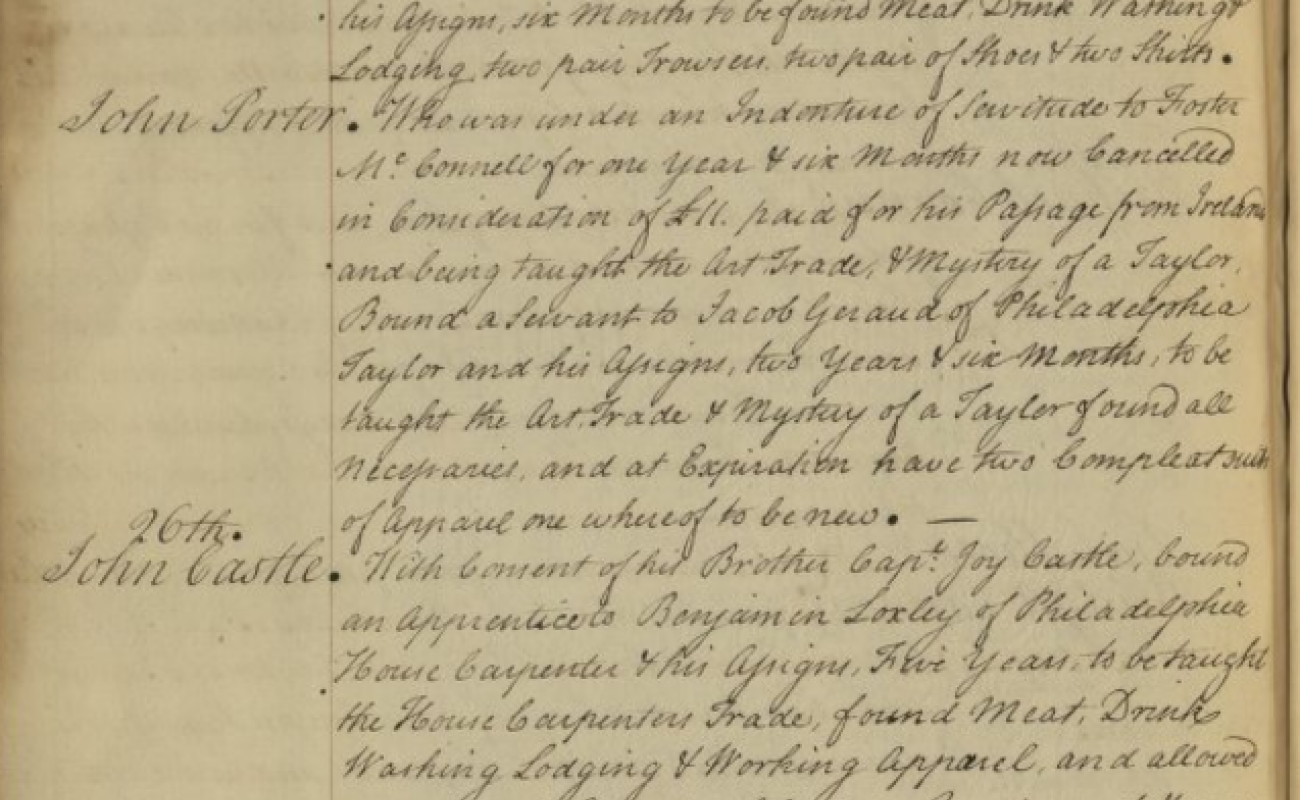 his Assigns, six Months to be found Meat, Drink Washing &
Lodging, two pair Trowsers, two pair of Shoes & two Shirts.
John Porter. Who was under an Indenture of Servitude to Foster
Mc Connell for one Year & six Months now Cancelled
in Consideration of £11. paid for his Passage from Ireland
and being taught the Art, Trade, & Mystery of a Taylor,
Bound a Servant to Jacob Geraud of Philadelphia
Taylor and his Assigns, two Years & six Months, to be
taught the Art, Trade & Mystery of a Taylor found all
necessaries, and at Expiration have two Compleat suits
of Apparel one whereof to be new. —
26th.
John Castle. With Consent of his Brother Capt. Joy Castle, bound
an Apprentice to Benjamin Loxley of Philadelphia
House Carpenter & his Assigns, Five Years, to be taught
the House Carpenters Trade, found Meat, Drink
Washing Lodging & Working Apparel, and allowed